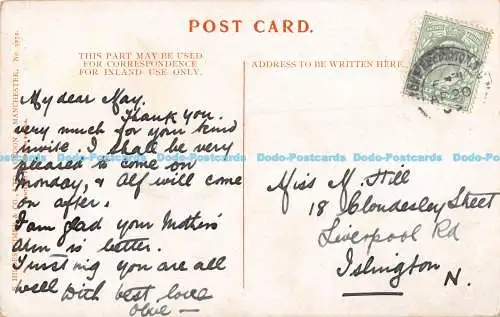 POST CARD.
THIS PART MAY BE USED
FOR CORRESPONDENCE
FOR INLAND USE ONLY.
ADDRESS TO BE WRITTEN HERE.
My dear May.
Thank you
very much for your kind
invite. I shall be very
pleased to come on
Monday, & Alf will come
on after.
I am glad your Mothers'
arm is better.
Trusting you are all
well With best love
Olive —
Miss M. Hill
18 Cloudesley Street
Liverpool Rd
Islington
N.
MANCHESTER,
Do-Postcards Do-Postcards Do-Postcards Do-Postcards Do-Postcards